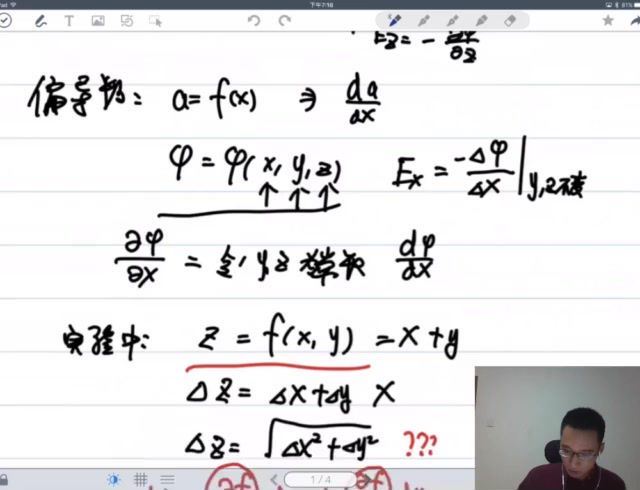 下午7:18
81%
Ez = - ∂φ/∂z
偏导数: a = f(x) ⇒ da/dx
φ = φ(x, y, z) Ex = -Δφ/Δx | y,z不变
∂φ/∂x = 令 y,z 为常数 dφ/dx
实验中: z = f(x, y) = x + y
Δz = Δx + Δy X
Δz = √(Δx² + Δy²) ???
1 / 4
∂f ∂f